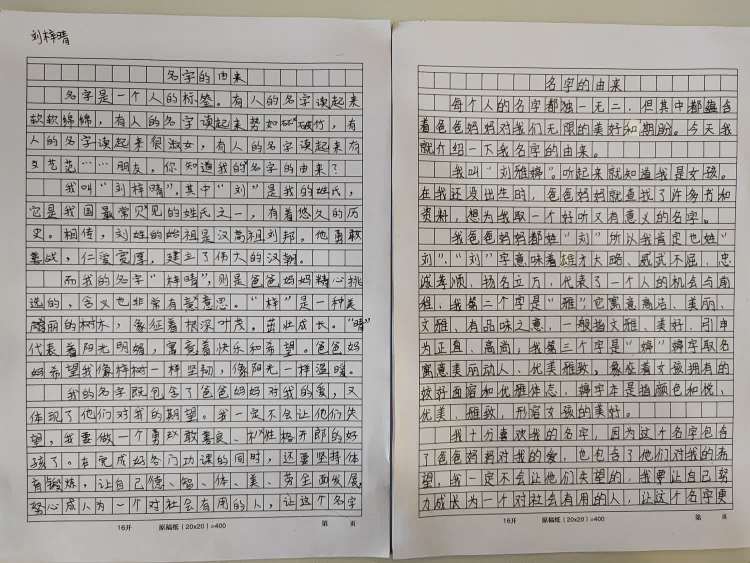 刘梓晴
名字的由来
名字是一个人的标签。有人的名字读起来
软软绵绵，有人的名字读起来势如破竹，有
人的名字读起来很淑女，有人的名字读起来有
文艺范……朋友，你知道我的名字的由来？
我叫“刘梓晴”，其中“刘”是我的姓氏，
它是我国最常见的姓氏之一，有着悠久的历
史。相传，刘姓的始祖是汉高祖刘邦。他勇敢
善战，仁爱宽厚，建立了伟大的汉朝。
而我的名字“梓晴”，则是爸爸妈妈精心挑
选的，含义也非常有意思。“梓”是一种美
丽的树木，象征着根深叶茂。茁壮成长。“晴”
代表着阳光明媚，寓意着快乐和希望。爸爸妈
妈希望我像梓树一样坚韧，像阳光一样温暖。
我的名字既包含了爸爸妈妈对我的爱，又
体现了他们对我的期望。我一定不会让他们失
望，我要做一个勇敢善良、性格开朗的好
孩子。在完成好各门功课的同时，还要坚持体
育锻炼，让自己德、智、体、美、劳全面发展，
努力成人为一个对社会有用的人，让这个名字
16开 原稿纸（20x20）=400 第 页
名字的由来
每个人的名字都独一无二，但其中都蕴含
着爸爸妈妈对我们无限的美好和期盼。今天我
就介绍一下我名字的由来。
我叫“刘雅婷”。听起来就知道我是女孩。
在我还没出生时，爸爸妈妈就查找了许多书和
资料，想为我取一个好听又有意义的名字。
我爸爸妈妈都姓“刘”所以我肯定也姓“
刘”，“刘”字意味着雄才大略、威武不屈、忠
诚孝顺、扬名立万，代表了一个人的机会与前
程，我第二个字是“雅”它寓意高洁、美丽、
文雅、有品味之意，一般指文雅、美好，引申
为正直、高尚，我第三个字是“婷”婷字取名
寓意美丽动人、优美雅致，象征着女孩拥有的
姣好面容和优雅体态，婷字本是指颜色和悦、
优美、雅致，形容女孩的美好。
我十分喜欢我的名字，因为这个名字包含
了爸爸妈妈对我的爱，也包含了他们对我的希
望，我一定不会让他们失望的，我要让自己努
力成长为一个对社会有用的人，让这个名字更
16开 原稿纸（20x20）=400 第 页